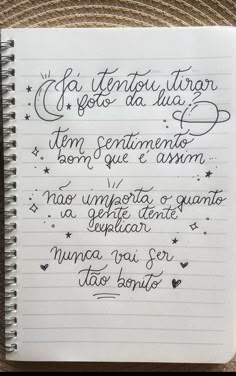 Já tentou tirar
foto da lua?
tem sentimento
bom que é assim
não importa o quanto
a gente tente
explicar
nunca vai ser
tão bonito